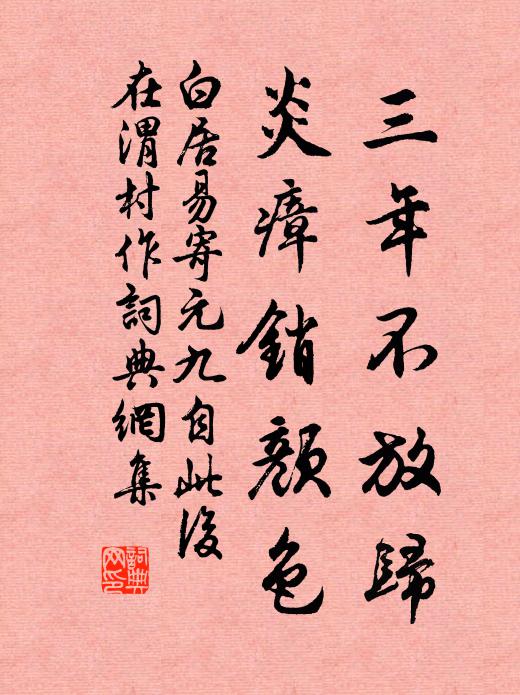 三年不放歸
炎瘴銷顏色
白居易寄元九自此後
在渭村作詞典網集
詞典
网印